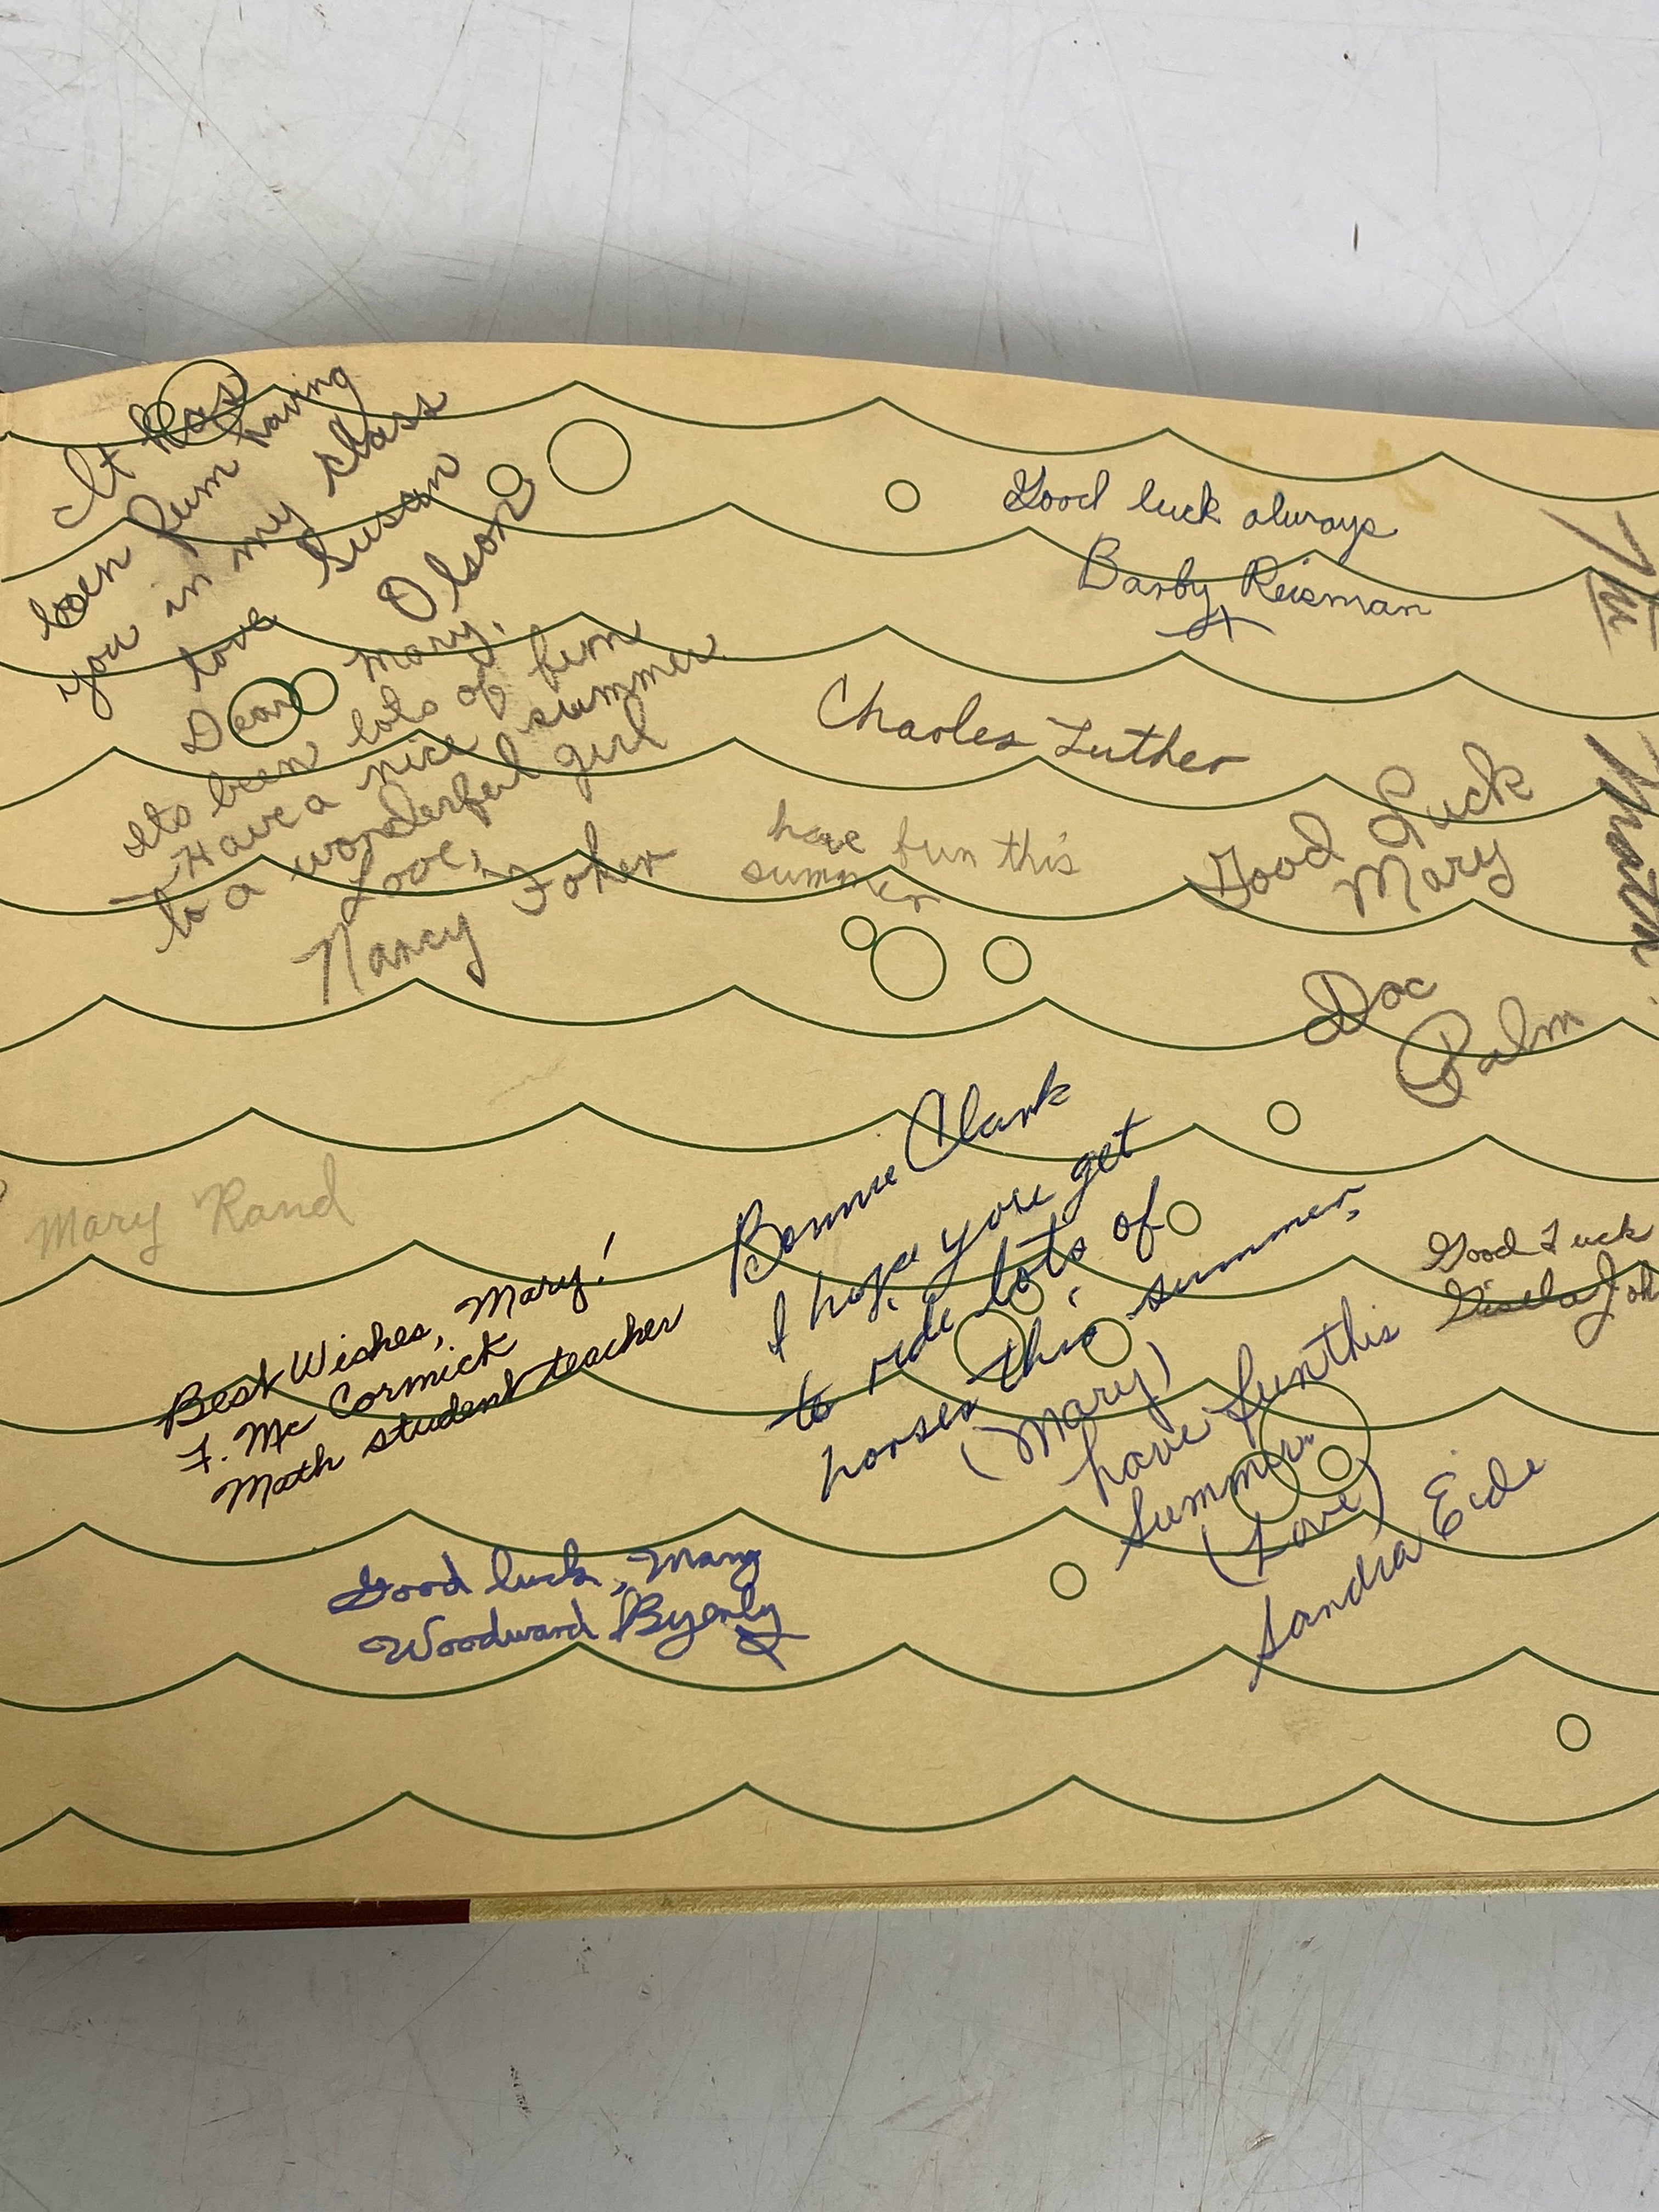 It has
been fum having
you in my class
love Susan
Olson
Dear Mary,
Its been lots of fum
Have a nice summer
to a wonderful girl
Love,
Nancy Foker
Good luck always
Barby Reisman
Charles Luther
have fun this
summer
Good Luck
Mary
Doc
Palm
Mary Rand
Best Wishes, Mary!
F. Mc Cormick
Math student teacher
Bonnie Clark
I hope you get
to ride lots of
horses this summer,
(Mary)
have fun this
summer
(Love)
Sandra Eide
Good Luck
Gisela Joh
Good luck, Mary
Woodward Byerly